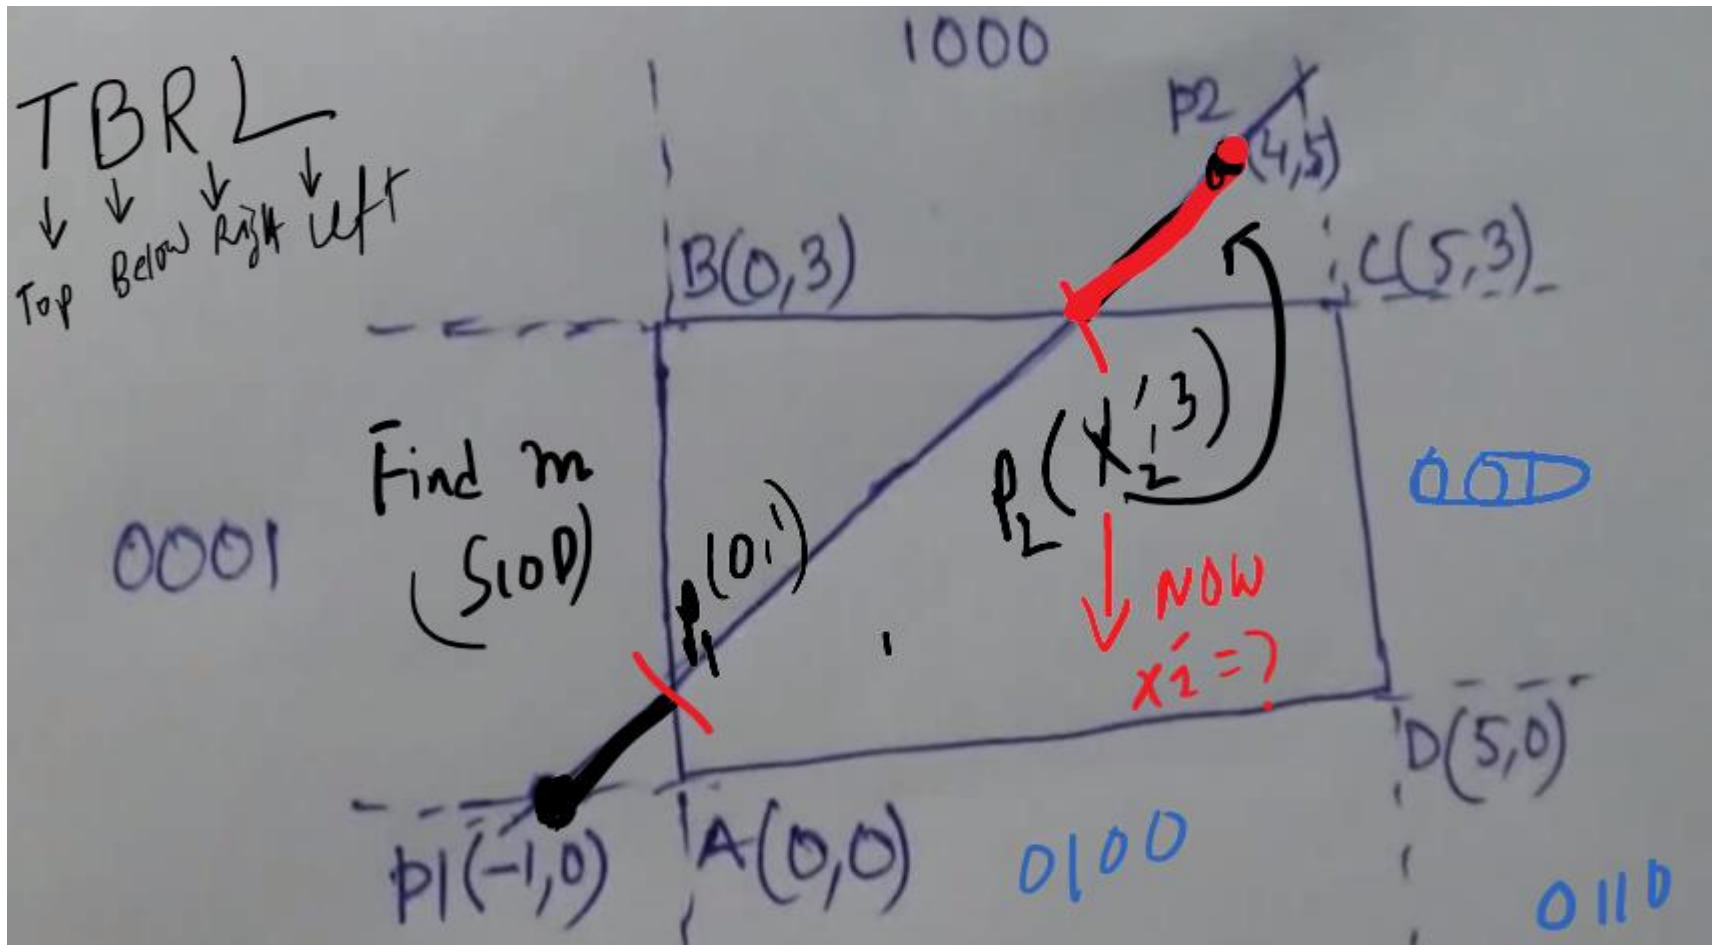 1000
TBRL
Top Below Right Left
P2
(4,5)
B(0,3)
C(5,3)
Find m
(SLOD)
P2(X2',3)
P1(0,')
0001
NOW
X2'=?
D(5,0)
P1(-1,0)
A(0,0)
0100
0110